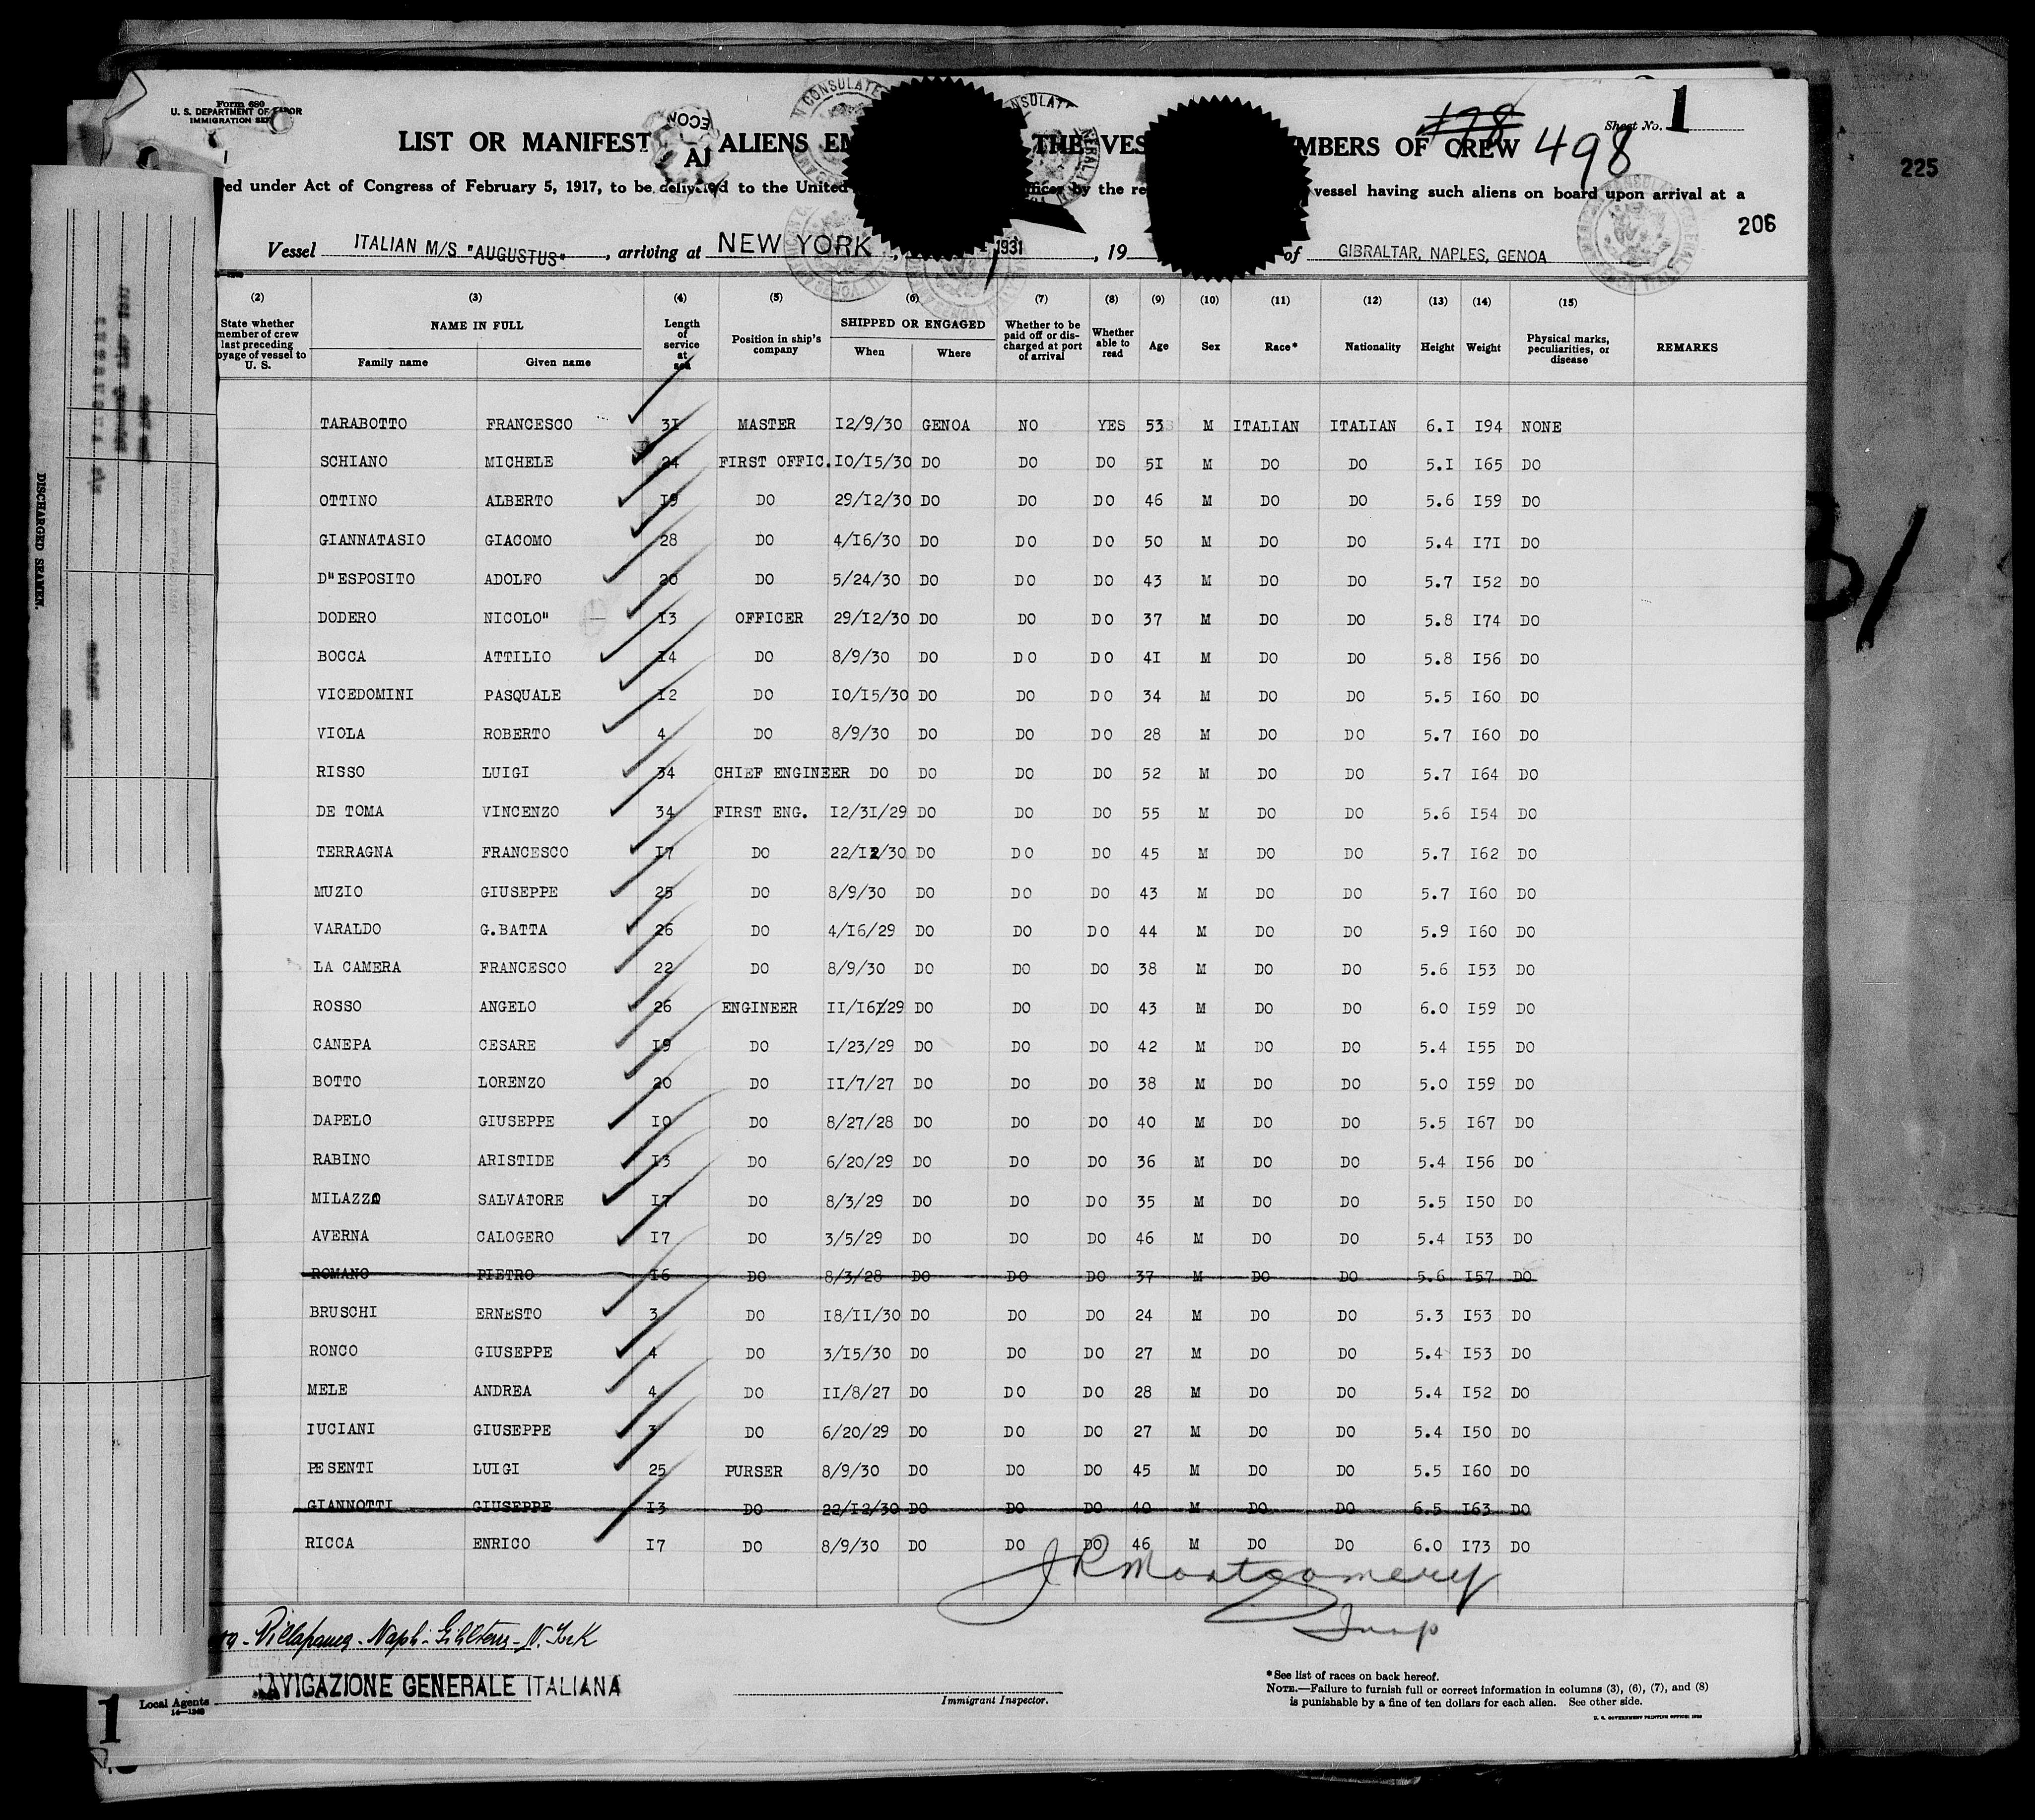 Form 680
U. S. DEPARTMENT OF LABOR
IMMIGRATION SER
Sheet No. 1
LIST OR MANIFEST ALIENS EM THE VES MBERS OF CREW 498
225
ed under Act of Congress of February 5, 1917, to be delivered to the United fficer by the re vessel having such aliens on board upon arrival at a
206
Vessel ITALIAN M/S "AUGUSTUS" , arriving at NEW YORK , 1931 , 19 of GIBRALTAR, NAPLES, GENOA
(2) (3) (4) (5) (6) (7) (8) (9) (10) (11) (12) (13) (14) (15)
State whether member of crew last preceding oyage of vessel to U. S.
NAME IN FULL
Family name Given name
Length of service at sea
Position in ship's company
SHIPPED OR ENGAGED
When Where
Whether to be paid off or discharged at port of arrival
Whether able to read
Age Sex Race* Nationality Height Weight
Physical marks, peculiarities, or disease
REMARKS
TARABOTTO FRANCESCO 31 MASTER 12/9/30 GENOA NO YES 53 M ITALIAN ITALIAN 6.1 194 NONE
SCHIANO MICHELE 24 FIRST OFFIC. 10/15/30 DO DO DO 51 M DO DO 5.1 165 DO
OTTINO ALBERTO 19 DO 29/12/30 DO DO DO 46 M DO DO 5.6 159 DO
GIANNATASIO GIACOMO 28 DO 4/16/30 DO DO DO 50 M DO DO 5.4 171 DO
D"ESPOSITO ADOLFO 20 DO 5/24/30 DO DO DO 43 M DO DO 5.7 152 DO
DODERO NICOLO" 13 OFFICER 29/12/30 DO DO DO 37 M DO DO 5.8 174 DO
BOCCA ATTILIO 14 DO 8/9/30 DO DO DO 41 M DO DO 5.8 156 DO
VICEDOMINI PASQUALE 12 DO 10/15/30 DO DO DO 34 M DO DO 5.5 160 DO
VIOLA ROBERTO 4 DO 8/9/30 DO DO DO 28 M DO DO 5.7 160 DO
RISSO LUIGI 34 CHIEF ENGINEER DO DO DO DO 52 M DO DO 5.7 164 DO
DE TOMA VINCENZO 34 FIRST ENG. 12/31/29 DO DO DO 55 M DO DO 5.6 154 DO
TERRAGNA FRANCESCO 17 DO 22/12/30 DO DO DO 45 M DO DO 5.7 162 DO
MUZIO GIUSEPPE 25 DO 8/9/30 DO DO DO 43 M DO DO 5.7 160 DO
VARALDO G.BATTA 26 DO 4/16/29 DO DO DO 44 M DO DO 5.9 160 DO
LA CAMERA FRANCESCO 22 DO 8/9/30 DO DO DO 38 M DO DO 5.6 153 DO
ROSSO ANGELO 26 ENGINEER 11/16/29 DO DO DO 43 M DO DO 6.0 159 DO
CANEPA CESARE 19 DO 1/23/29 DO DO DO 42 M DO DO 5.4 155 DO
BOTTO LORENZO 20 DO 11/7/27 DO DO DO 38 M DO DO 5.0 159 DO
DAPELO GIUSEPPE 10 DO 8/27/28 DO DO DO 40 M DO DO 5.5 167 DO
RABINO ARISTIDE 13 DO 6/20/29 DO DO DO 36 M DO DO 5.4 156 DO
MILAZZO SALVATORE 17 DO 8/3/29 DO DO DO 35 M DO DO 5.5 150 DO
AVERNA CALOGERO 17 DO 3/5/29 DO DO DO 46 M DO DO 5.4 153 DO
ROMANO PIETRO 16 DO 8/3/28 DO DO DO 37 M DO DO 5.6 157 DO
BRUSCHI ERNESTO 3 DO 18/11/30 DO DO DO 24 M DO DO 5.3 153 DO
RONCO GIUSEPPE 4 DO 3/15/30 DO DO DO 27 M DO DO 5.4 153 DO
MELE ANDREA 4 DO 11/8/27 DO DO DO 28 M DO DO 5.4 152 DO
IUCIANI GIUSEPPE 3 DO 6/20/29 DO DO DO 27 M DO DO 5.4 150 DO
PESENTI LUIGI 25 PURSER 8/9/30 DO DO DO 45 M DO DO 5.5 160 DO
GIANNOTTI GIUSEPPE 13 DO 22/12/30 DO DO DO 40 M DO DO 6.5 163 DO
RICCA ENRICO 17 DO 8/9/30 DO DO DO 46 M DO DO 6.0 173 DO
J R Montgomery
Insp
NAVIGAZIONE GENERALE ITALIANA
Local Agents
Immigrant Inspector.
*See list of races on back hereof.
NOTE.—Failure to furnish full or correct information in columns (3), (6), (7), and (8)
is punishable by a fine of ten dollars for each alien. See other side.
U. S. GOVERNMENT PRINTING OFFICE: 1930
1
DISCHARGED SEAMEN.